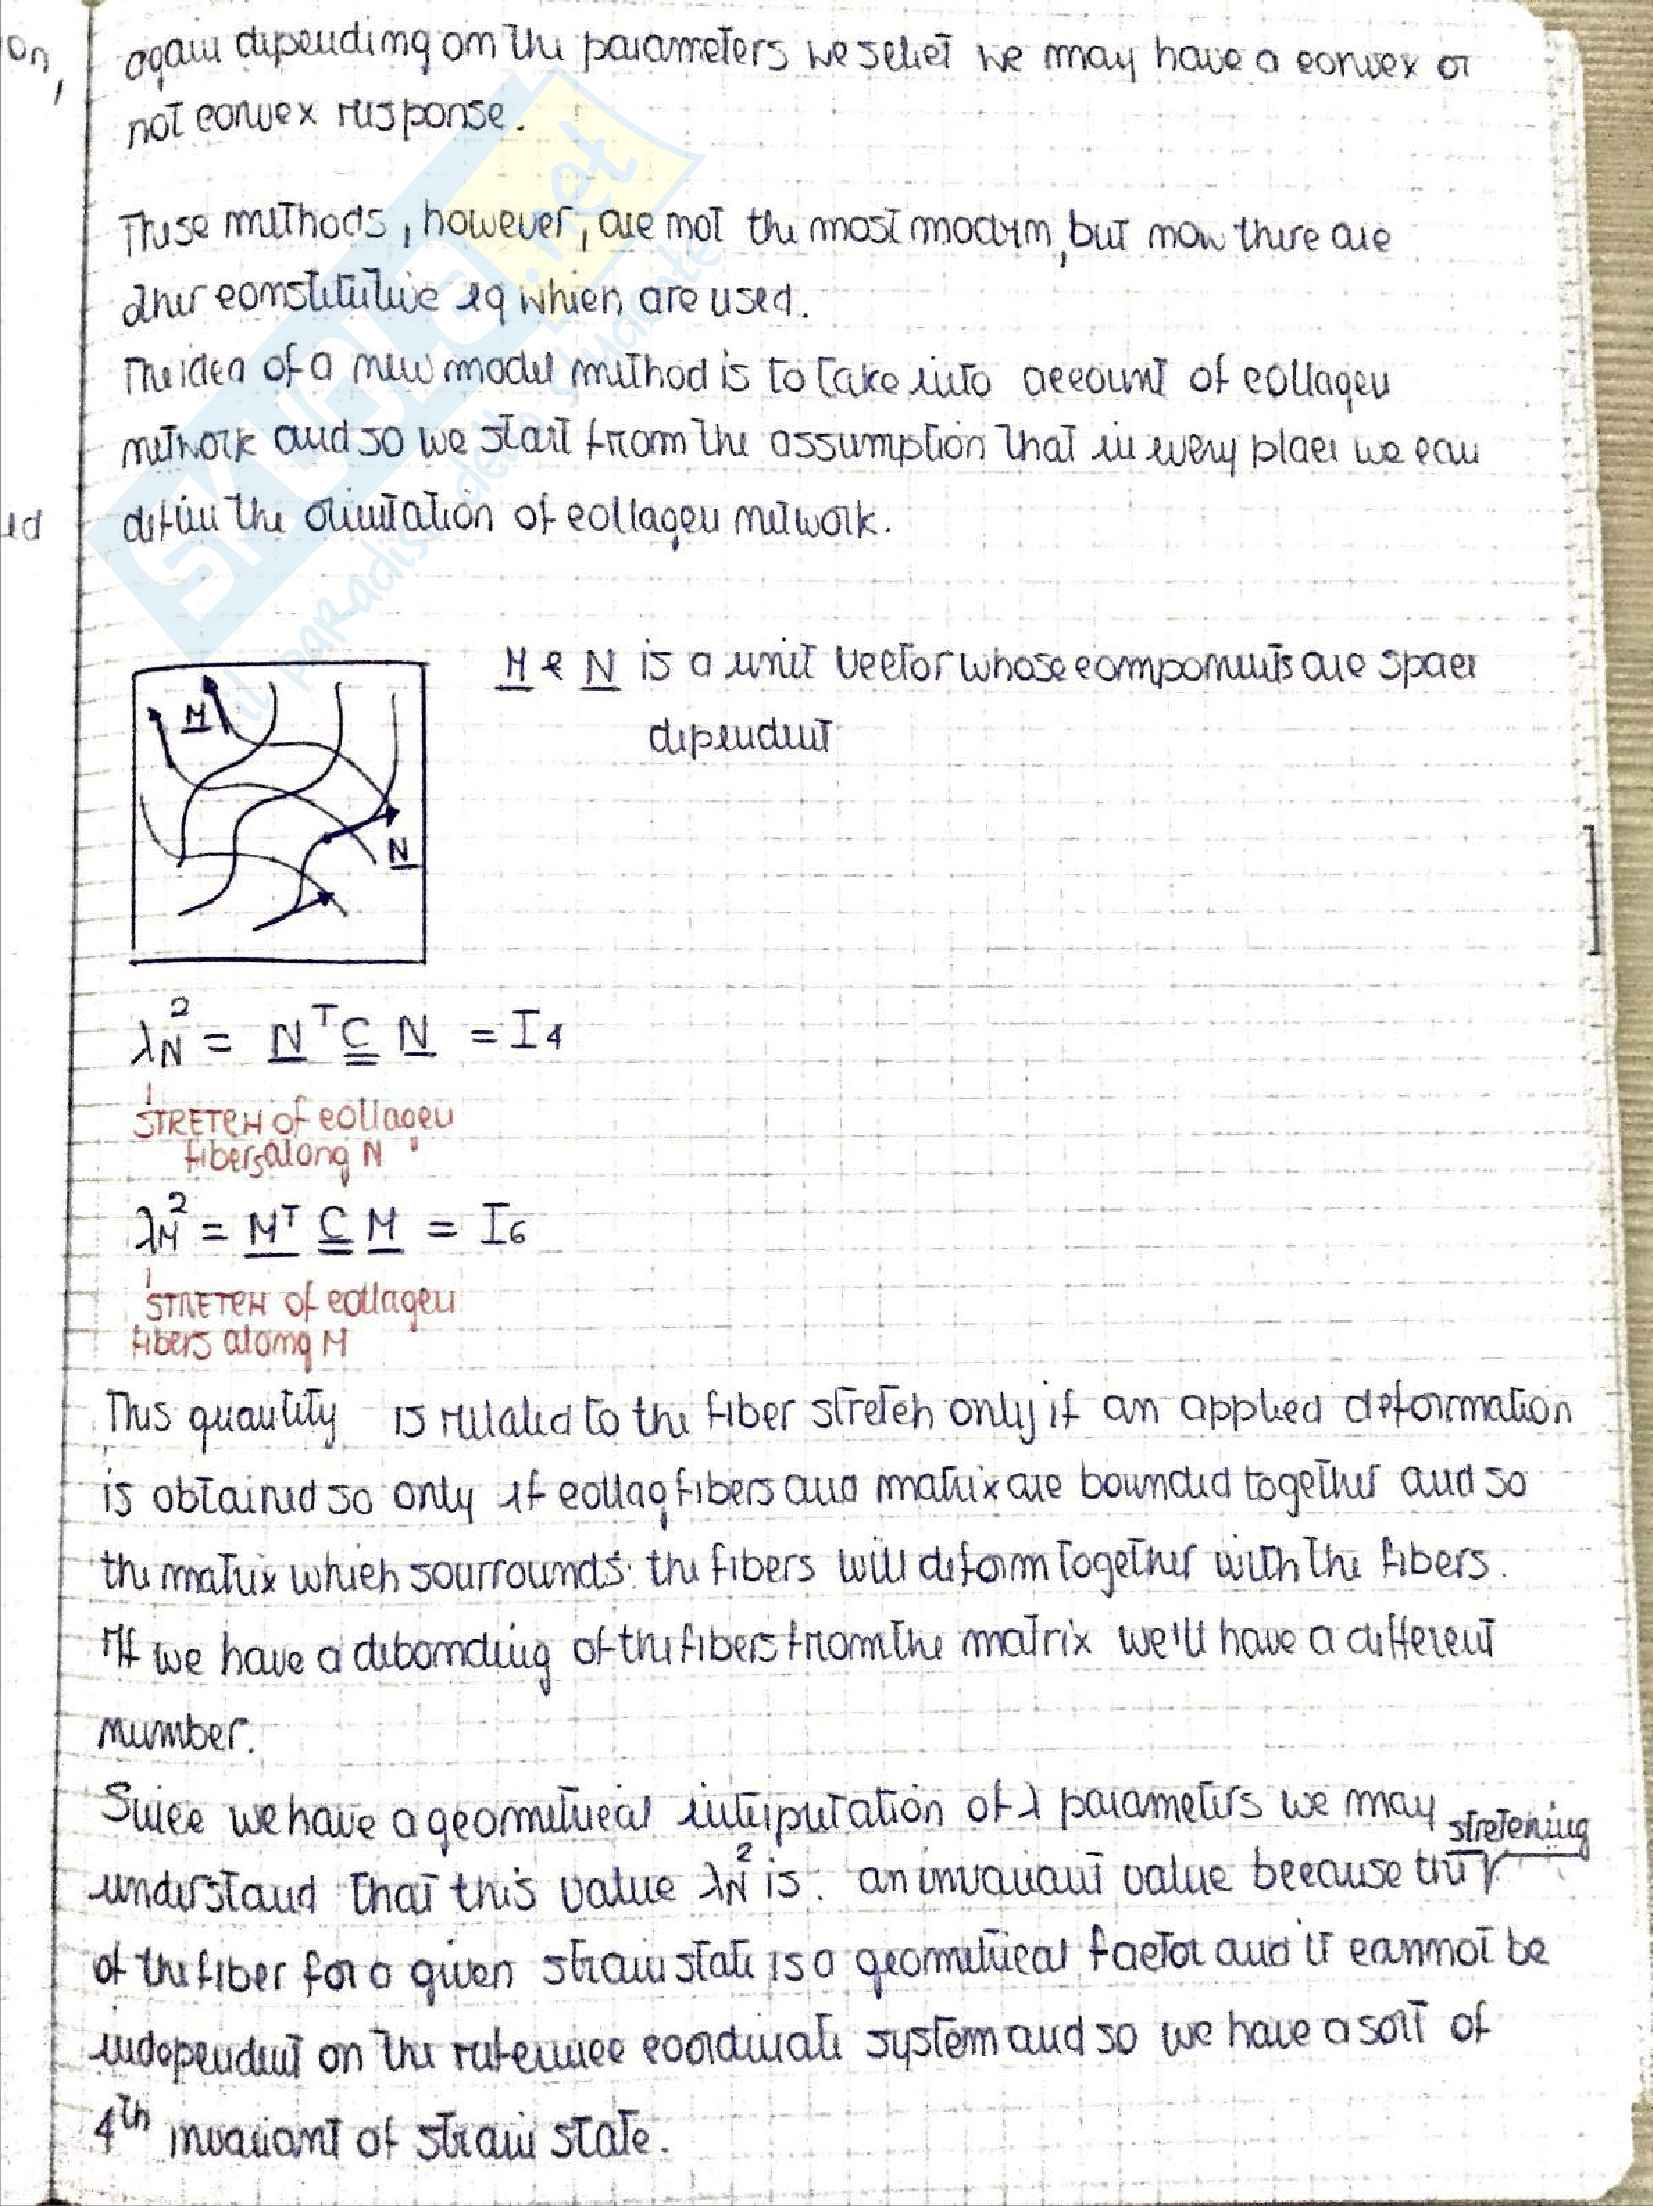 on,
again depending on the parameters we select we may have a convex or
not convex response.
These methods, however, are not the most modern, but now there are
other constitutive eq which are used.
The idea of a new model method is to take into account of collagen
network and so we start from the assumption that in every place we can
define the orientation of collagen network.
ed
M e N is a unit vector whose components are space
dependent
M
N
λN² = N^T C N = I4
STRETCH of collagen
fibers along N
λM² = M^T C M = I6
STRETCH of collagen
fibers along M
This quantity is related to the fiber stretch only if an applied deformation
is obtained so only if collag fibers and matrix are bounded together and so
the matrix which sourrounds the fibers will deform together with the fibers.
If we have a debonding of the fibers from the matrix we'll have a different
number.
Since we have a geometrical interpretation of λ parameters we may
stretching
understand that this value λN² is an invariant value because the
of the fiber for a given strain state is a geometrical factor and it cannot be
independent on the reference coordinate system and so we have a sort of
4th invariant of strain state.
SKUOLA.net
il paradiso dello studente